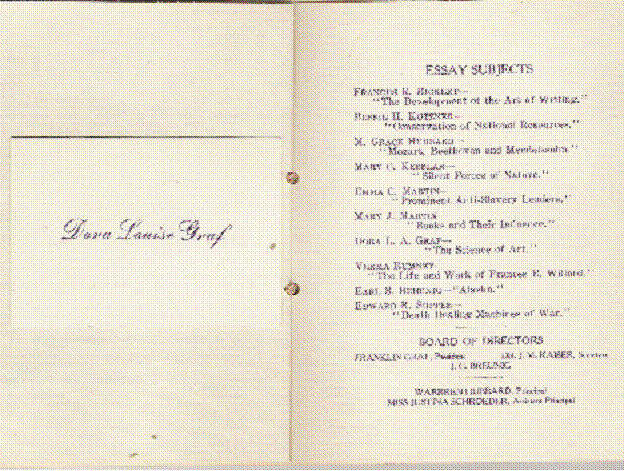 Dora Louise Graf
ESSAY SUBJECTS
FRANCES E.
"The Development of the Art of Writing."
H.
"Conservation of National Resources."
M. GRACE HUBBARD—
"Mozart, Beethoven and Mendelssohn."
MARY C.
"Silent Forces of Nature."
EMMA C. MARTIN—
"Prominent Anti-Slavery Leaders."
MARY J. MARTIN
"Books and Their Influence."
DORA L. A. GRAF—
"The Science of Art."
"The Life and Work of Frances E. Willard."
EARL B.
EDWARD R.
"Death Dealing Machines of War."
BOARD OF DIRECTORS
FRANKLIN GRAF, President DR. J. M. KAISER, Secretary
J. G. BREUNIG
WARREN HUBBARD, Principal
MISS JUSTINA SCHROEDER, Assistant Principal